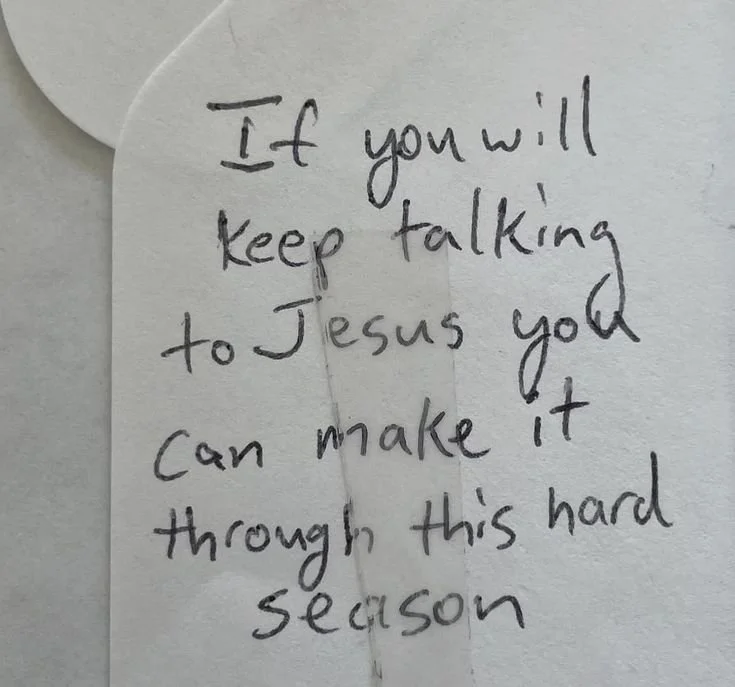 If you will
keep talking
to Jesus you
can make it
through this hard
season